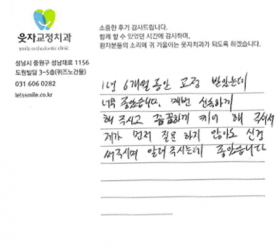 웃자교정치과
smile orthodontic clinic
성남시 중원구 성남대로 1156
도원빌딩 3~5층(퀴즈노건물)
031 606 0282
letssmile.co.kr
소중한 후기 감사드립니다.
함께 할 수 있었던 시간에 감사하며,
환자분들의 소리에 귀 기울이는 웃자치과가 되도록 하겠습니다.
1년 6개월 동안 교정 받았는데
너무 좋았습니다. 매번 친절하게
해 주시고 꼼꼼하게 케어 해 주셔서
제가 먼저 질문 하지 않아도 신경
써주시며 알려주시는게 좋았습니다